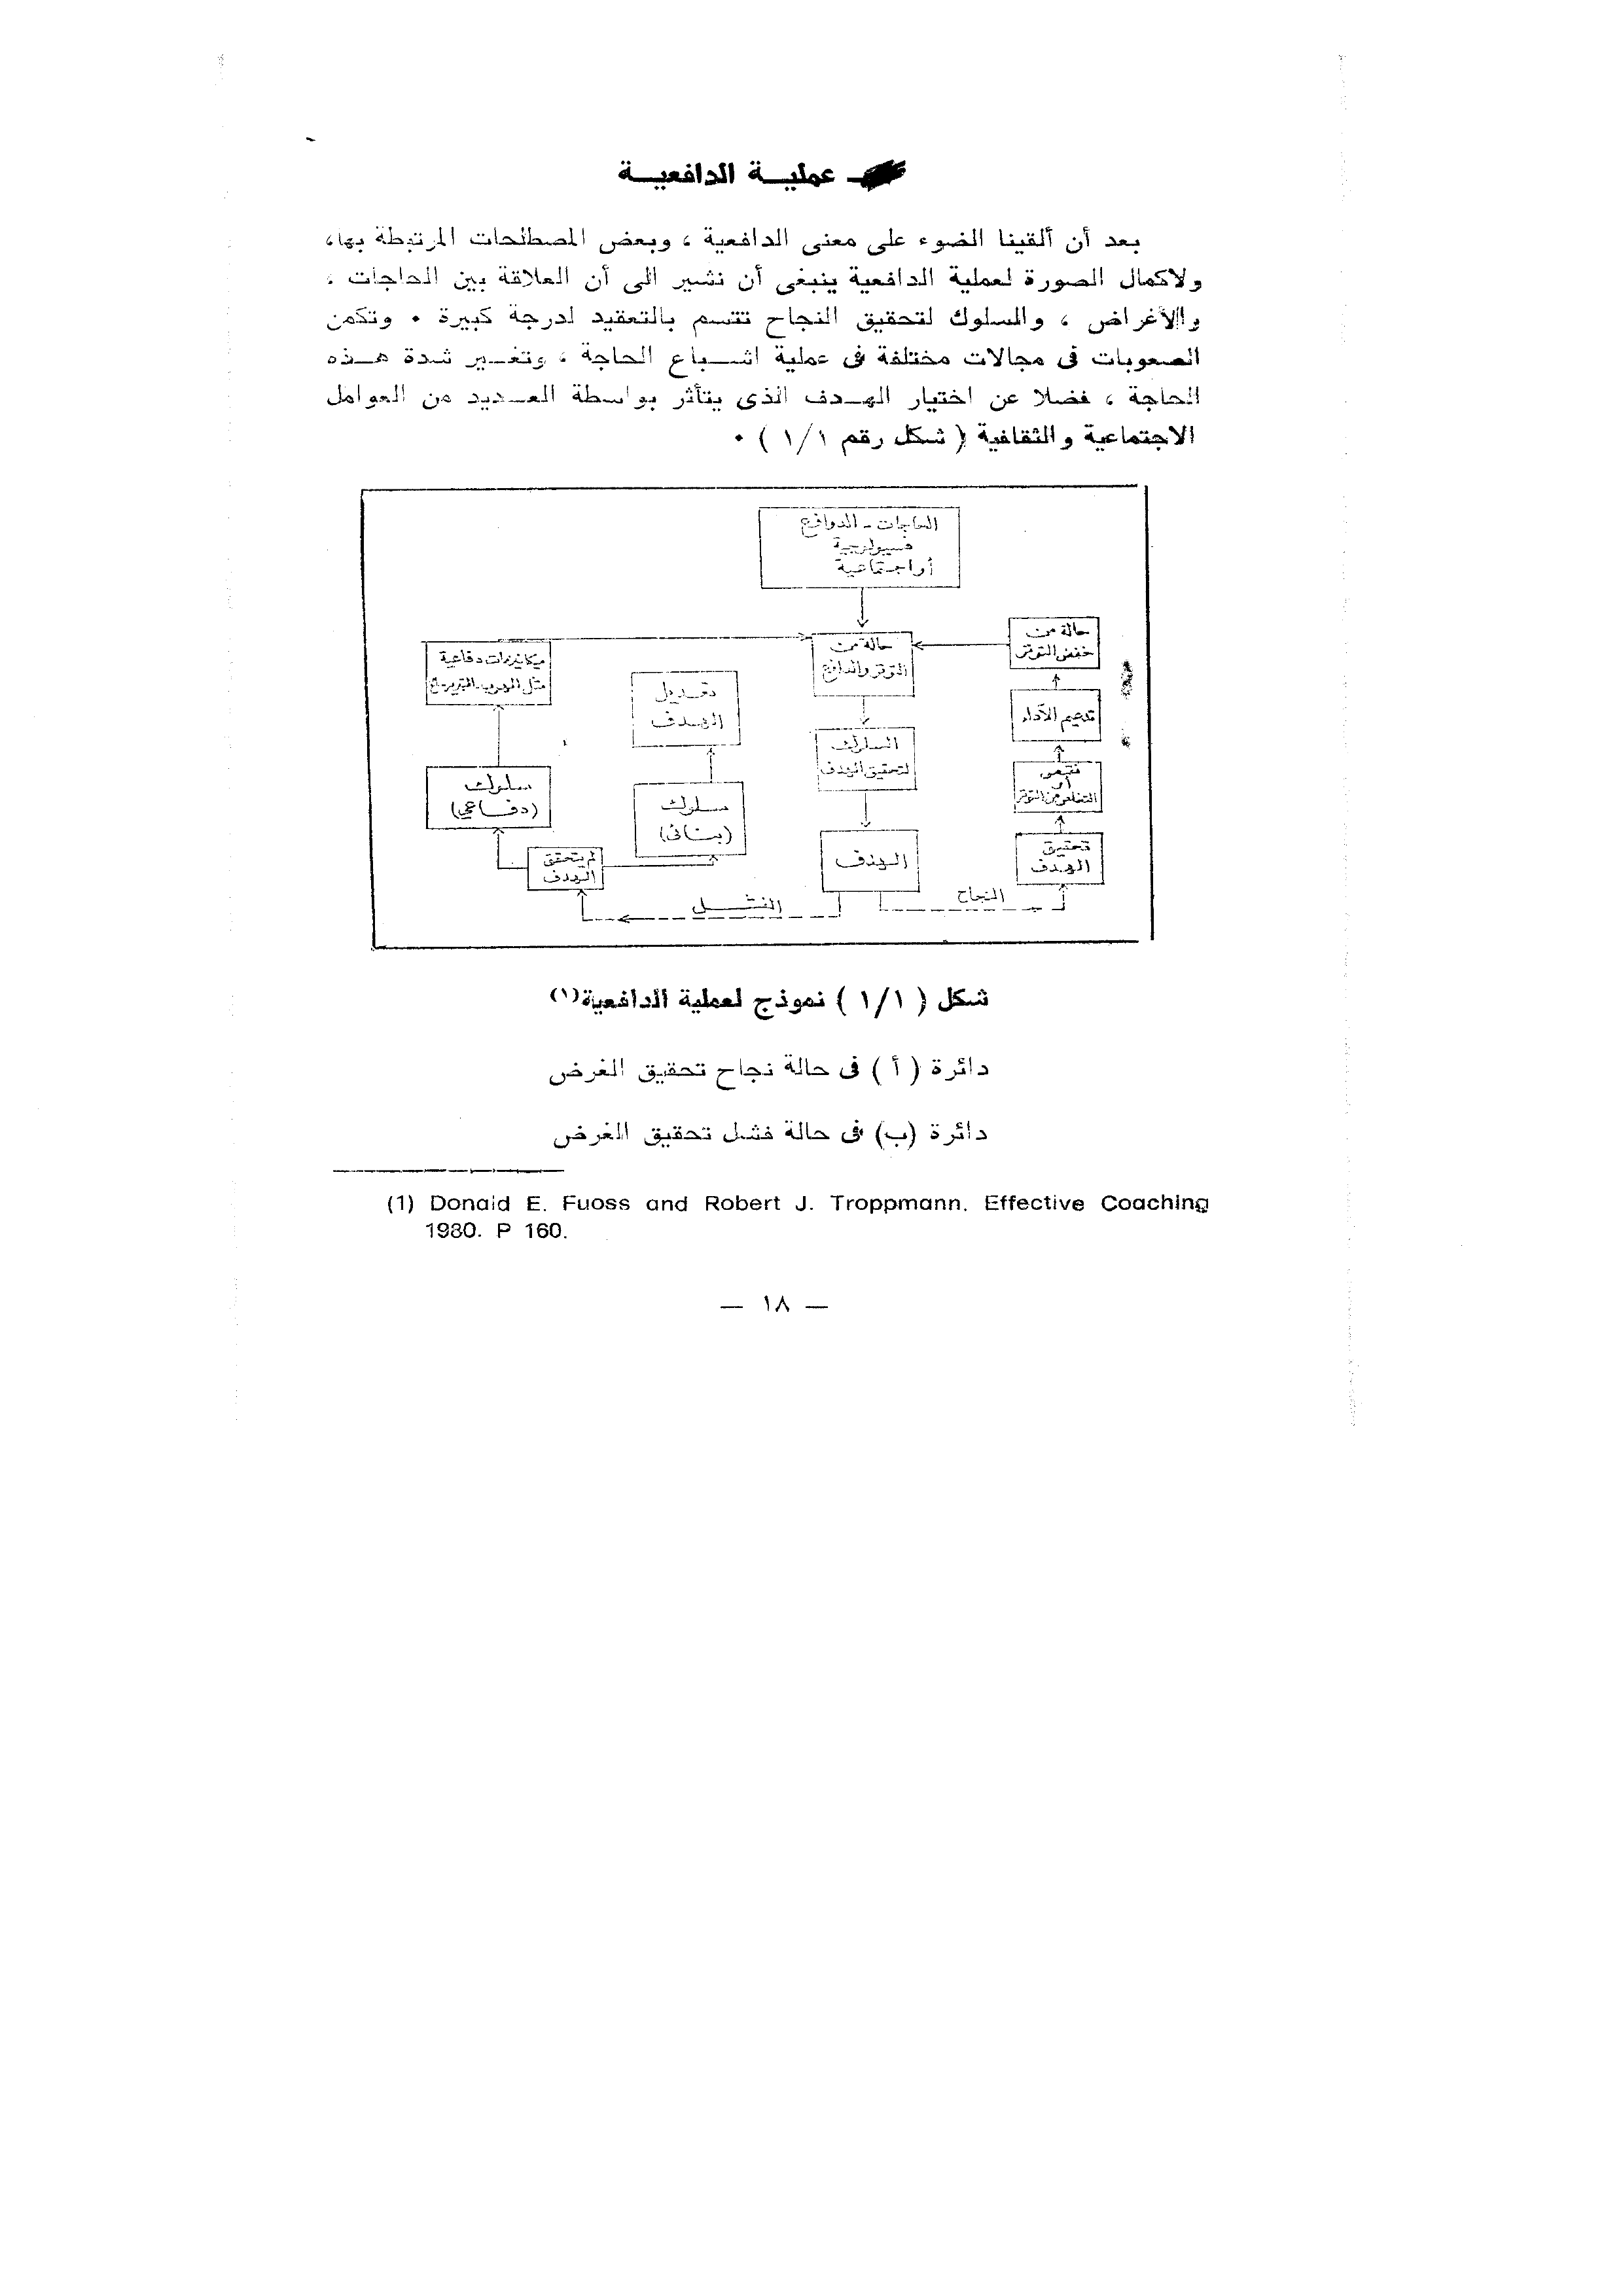 عمليــة الدافعيــة
بعد أن ألقينا الضوء على معنى الدافعية ، وبعض المصطلحات المرتبطة بها،
ولاكمال الصورة لعملية الدافعية ينبغى أن نشير الى أن العلاقة بين الحاجات ،
والأغراض ، والسلوك لتحقيق النجاح تتسم بالتعقيد لدرجة كبيرة . وتكمن
الصعوبات فى مجالات مختلفة فى عملية اشــباع الحاجة ، وتغــير شدة هــذه
الحاجة ، فضلا عن اختيار الهــدف الذى يتأثر بواسطة العــديد من العوامل
الاجتماعية والثقافية ( شكل رقم ١/١ ) .
الحاجات - الدوافع
فسيولوجية
أو اجتماعية
حالة من
خفض التوتر
حالة من
التوتر والدافع
ميكانيزمات دفاعية
مثل الهروب التبرير
تعديل
الهدف
تدعيم الأداء
السلوك
لتحقيق الهدف
سلوك
(دفاعي)
سلوك
(بنائى)
أو
التخلص من التوتر
تحقيق
الهدف
الهدف
لم يتحقق
الهدف
النجاح
الفشــل
شكل ( ١/١ ) نموذج لعملية الدافعية(١)
دائرة ( أ ) فى حالة نجاح تحقيق الغرض
دائرة (ب) فى حالة فشل تحقيق الغرض
(1) Donald E. Fuoss and Robert J. Troppmann. Effective Coaching
1980. P 160.
— ١٨ —